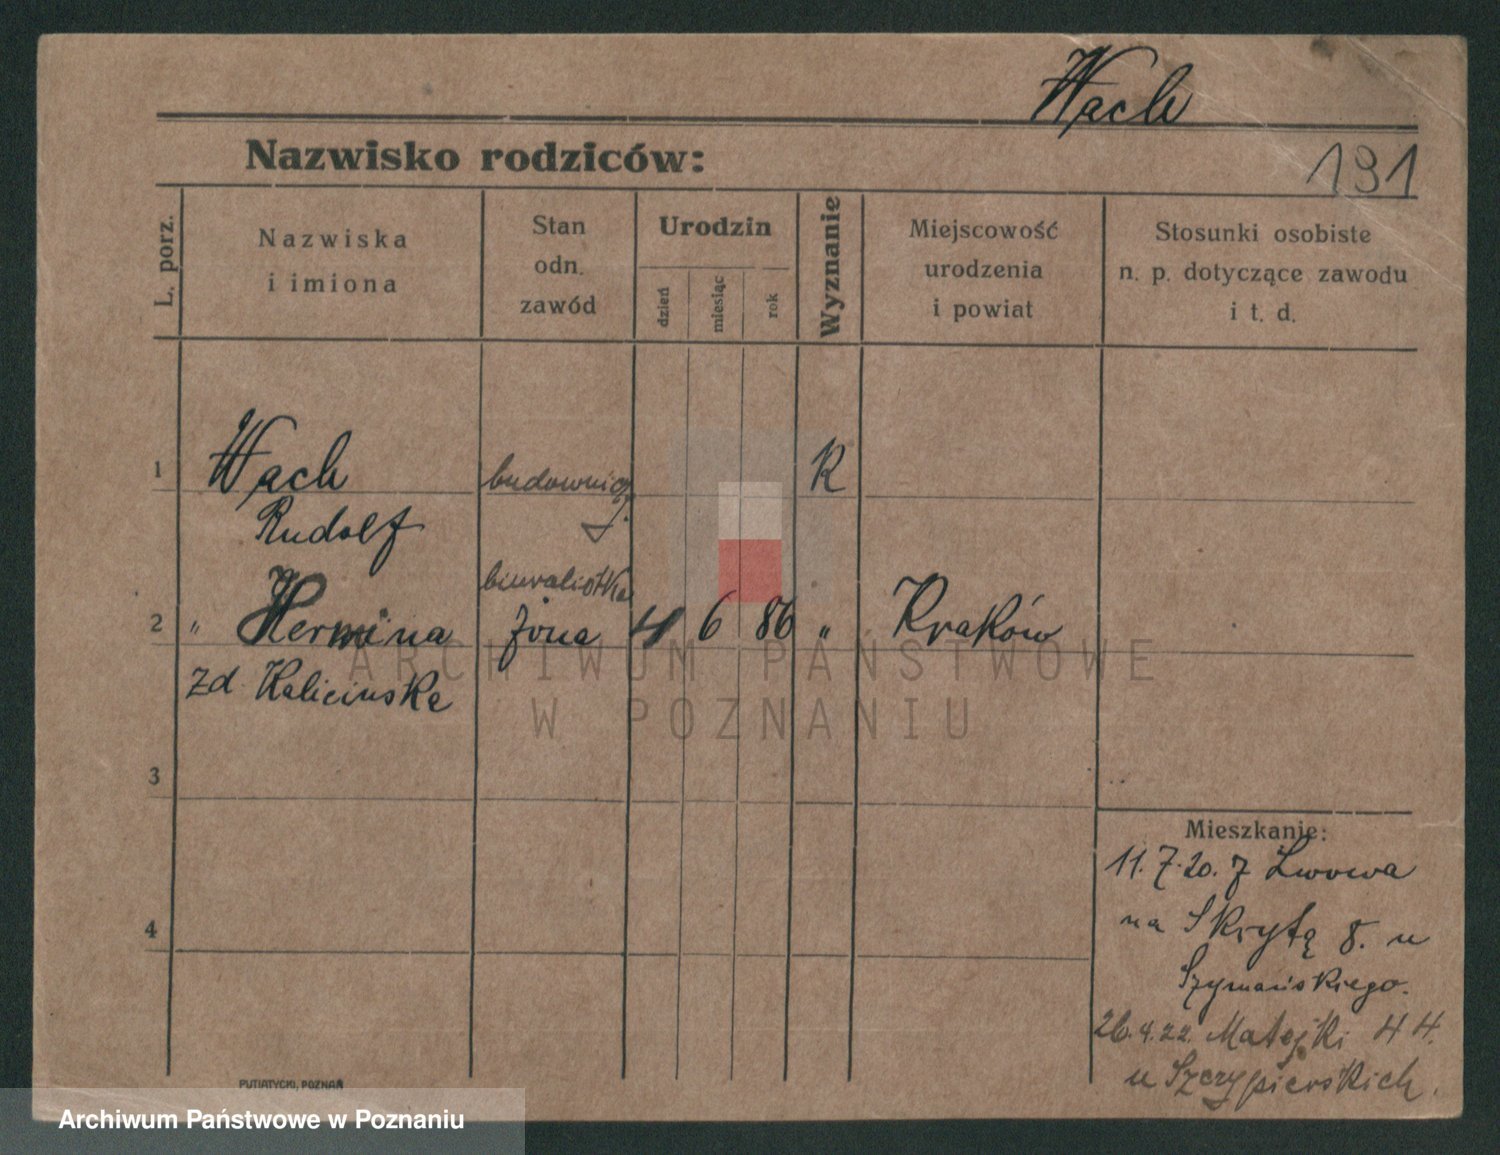 Wach
Nazwisko rodziców:
191
L. porz.
Nazwiska
i imiona
Stan
odn.
zawód
Urodzin
dzień
miesiąc
rok
Wyznanie
Miejscowość
urodzenia
i powiat
Stosunki osobiste
n. p. dotyczące zawodu
i t. d.
1
Wach
budowniczy
K
Rudolf
biuralistka
2
" Hermina
żona
4 6 86
"
Kraków
zd Kalicinska
3
4
Mieszkanie:
11.7.20. z Lwowa
na Skrytą 8. u
Szymańskiego.
26.4.22. Matejki 44.
u Szczypierskich.
PUTIATYCKI, POZNAŃ
ARCHIWUM PAŃSTWOWE
W POZNANIU
Archiwum Państwowe w Poznaniu